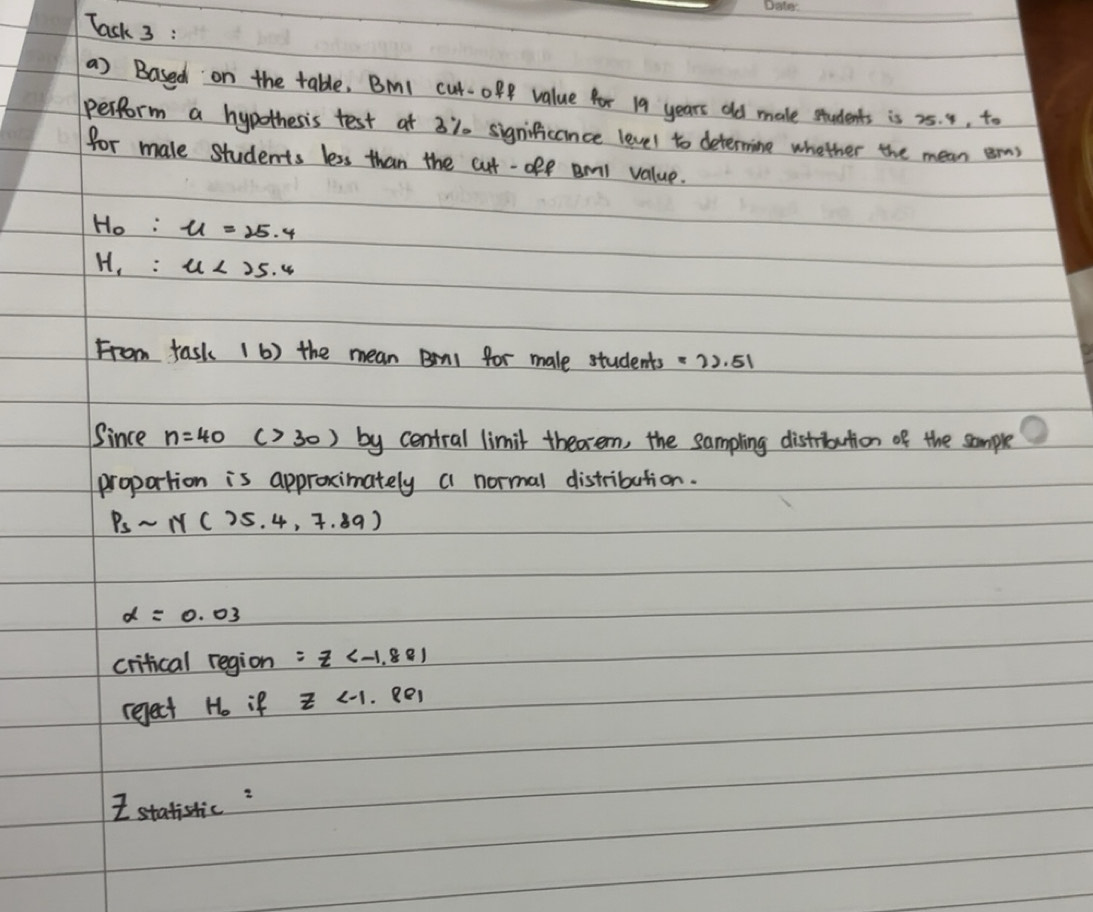 Date:
Task 3 :
a) Based on the table, BMI cut-off value for 19 years old male students is 25.4, to
perform a hypothesis test at 3% significance level to determine whether the mean BMI
for male students less than the cut-off BMI value.
H₀ : μ = 25.4
H₁ : μ < 25.4
From task 1 b) the mean BMI for male students = 22.51
Since n=40 (>30) by central limit theorem, the sampling distribution of the sample
proportion is approximately a normal distribution.
Pₛ ~ N ( 25.4, 7.89 )
α = 0.03
critical region : Z < -1.881
reject H₀ if Z < -1.881
Z statistic :